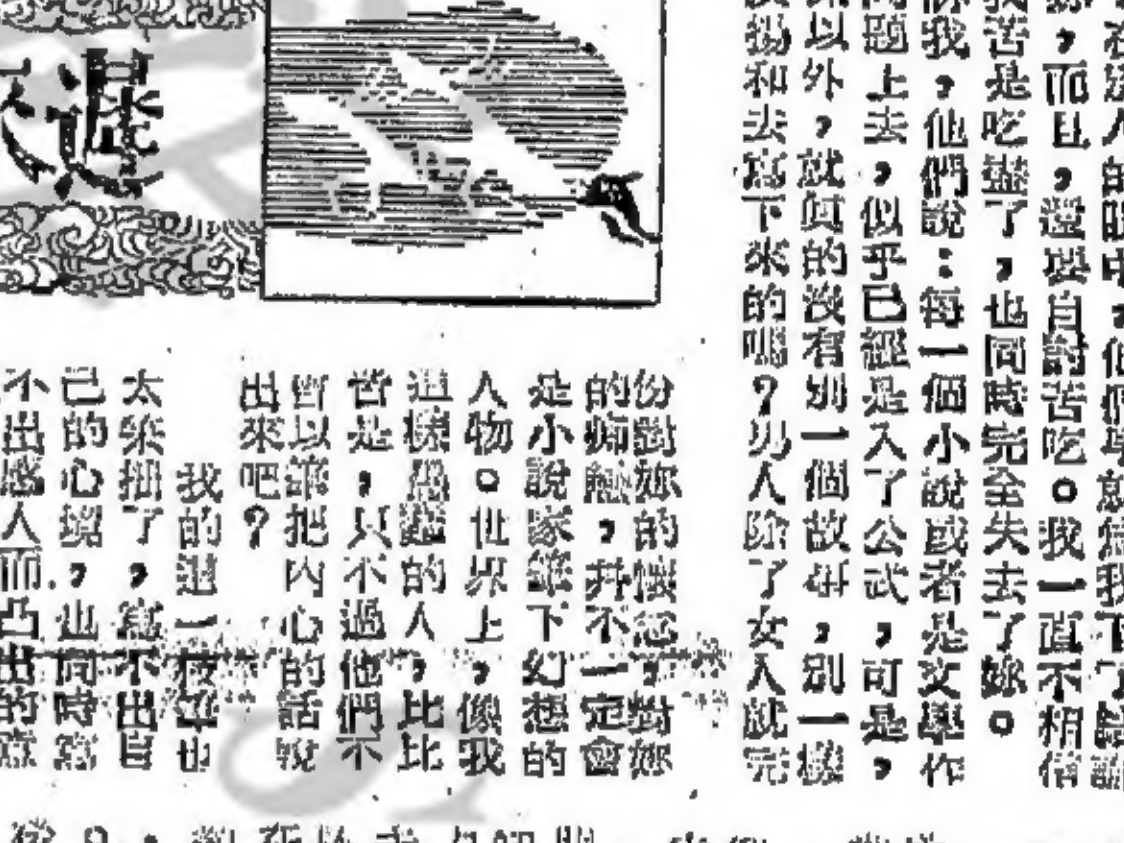 在這人的眼中,他們
,而且,還要自討苦吃。我一直不相信
我苦是吃盡了,也同時完全失去了妳。
你我,他們說:每一個小說或者是文學作
問題上去,似乎已經是入了公式,可是,
以外,就真的沒有別一個故事,別一樣
揚和去寫下來的嗎?男人除了女人就完
份對妳的懷念,對妳
的痴戀,并不一定會
是小說家筆下幻想的
人物。世界上,像我
這樣愚蠢的人,比比
皆是,只不過他們不
曾以筆把內心的話說
出來吧?
我的這一枝筆也
太笨拙了,寫不出自
己的心境,也同時寫
不出感人而凸出的意
遲